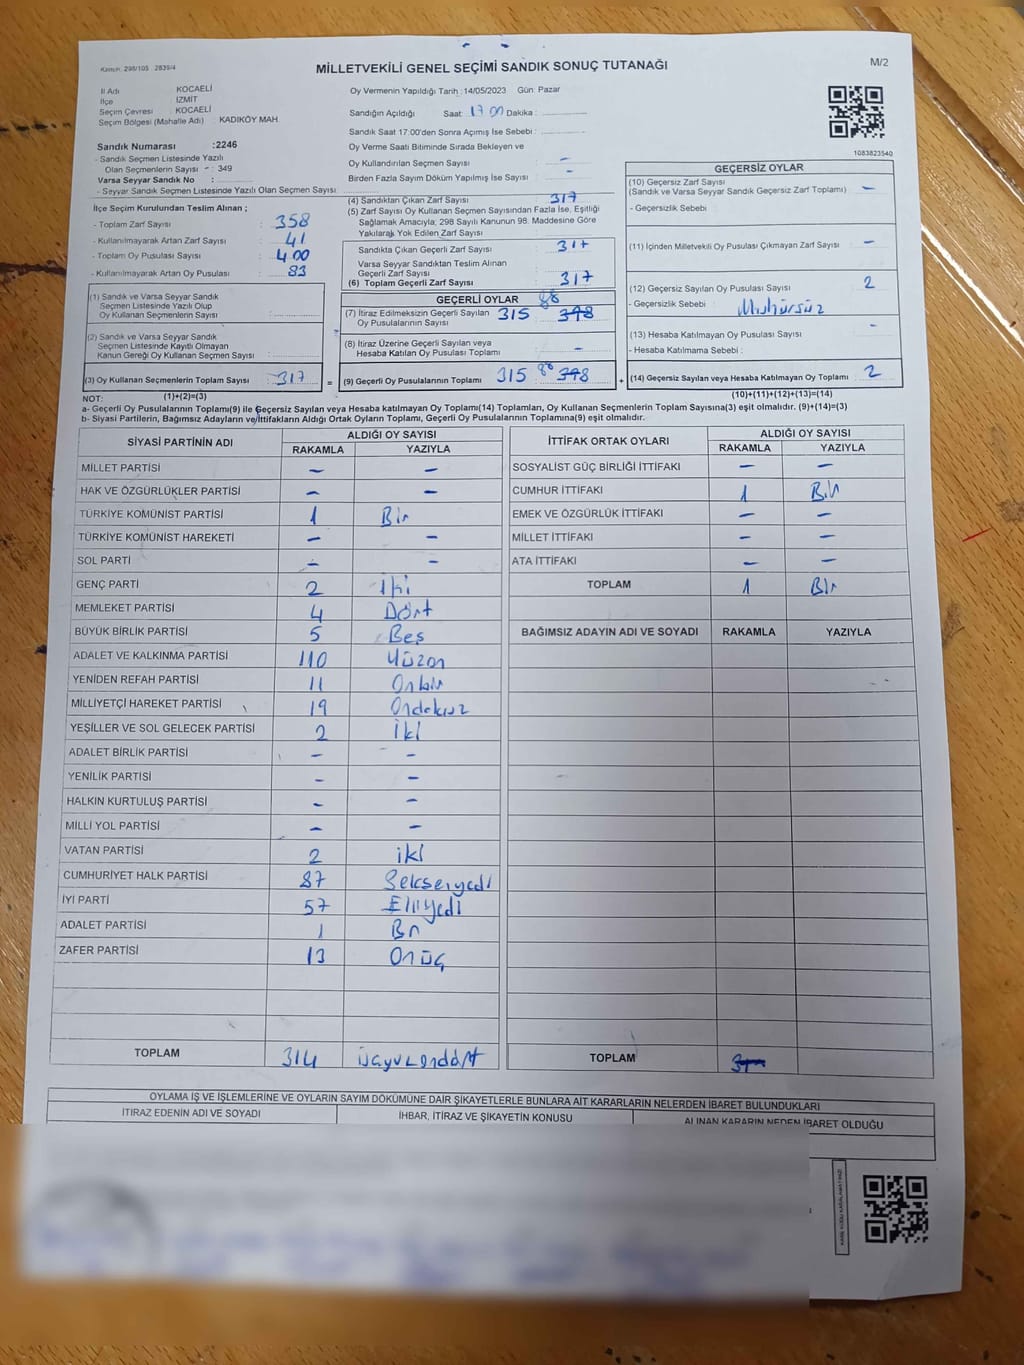 Kanun: 298/105 2839/4
MİLLETVEKİLİ GENEL SEÇİMİ SANDIK SONUÇ TUTANAĞI
M/2
İl Adı KOCAELİ
İlçe İZMİT
Seçim Çevresi KOCAELİ
Seçim Bölgesi (Mahalle Adı) KADIKÖY MAH.
Sandık Numarası :2246
- Sandık Seçmen Listesinde Yazılı
Olan Seçmenlerin Sayısı : 349
Varsa Seyyar Sandık No :
- Seyyar Sandık Seçmen Listesinde Yazılı Olan Seçmen Sayısı
Oy Vermenin Yapıldığı Tarih :14/05/2023 Gün: Pazar
Sandığın Açıldığı Saat: 17 00 Dakika :
Sandık Saat 17.00'den Sonra Açımış İse Sebebi :
Oy Verme Saati Bitiminde Sırada Bekleyen ve
Oy Kullandırılan Seçmen Sayısı : –
Birden Fazla Sayım Döküm Yapılmış İse Sayısı : –
1083823540
İlçe Seçim Kurulundan Teslim Alınan ;
- Toplam Zarf Sayısı : 358
- Kullanılmayarak Artan Zarf Sayısı : 41
- Toplam Oy Pusulası Sayısı : 400
- Kullanılmayarak Artan Oy Pusulası : 83
(1) Sandık ve Varsa Seyyar Sandık
Seçmen Listesinde Yazılı Olup
Oy Kullanan Seçmenlerin Sayısı :
(2) Sandık ve Varsa Seyyar Sandık
Seçmen Listesinde Kayıtlı Olmayan
Kanun Gereği Oy Kullanan Seçmen Sayısı :
(3) Oy Kullanan Seçmenlerin Toplam Sayısı : 317
(1)+(2)=(3)
(4) Sandıktan Çıkan Zarf Sayısı : 317
(5) Zarf Sayısı Oy Kullanan Seçmen Sayısından Fazla İse, Eşitliği
Sağlamak Amacıyla; 298 Sayılı Kanunun 98. Maddesine Göre
Yakılarak Yok Edilen Zarf Sayısı :
Sandıkta Çıkan Geçerli Zarf Sayısı : 317
Varsa Seyyar Sandıktan Teslim Alınan
Geçerli Zarf Sayısı :
(6) Toplam Geçerli Zarf Sayısı : 317
GEÇERLİ OYLAR
(7) İtiraz Edilmeksizin Geçerli Sayılan 315 398
Oy Pusulalarının Sayısı
(8) İtiraz Üzerine Geçerli Sayılan veya
Hesaba Katılan Oy Pusulası Toplamı : –
= (9) Geçerli Oy Pusulalarının Toplamı 315 398
GEÇERSİZ OYLAR
(10) Geçersiz Zarf Sayısı
(Sandık ve Varsa Seyyar Sandık Geçersiz Zarf Toplamı) –
- Geçersizlik Sebebi :
(11) İçinden Milletvekili Oy Pusulası Çıkmayan Zarf Sayısı –
(12) Geçersiz Sayılan Oy Pusulası Sayısı 2
- Geçersizlik Sebebi : Mühürsüz
(13) Hesaba Katılmayan Oy Pusulası Sayısı –
- Hesaba Katılmama Sebebi :
+ (14) Geçersiz Sayılan veya Hesaba Katılmayan Oy Toplamı 2
(10)+(11)+(12)+(13)=(14)
NOT:
a- Geçerli Oy Pusulalarının Toplamı(9) ile Geçersiz Sayılan veya Hesaba katılmayan Oy Toplamı(14) Toplamları, Oy Kullanan Seçmenlerin Toplam Sayısına(3) eşit olmalıdır. (9)+(14)=(3)
b- Siyasi Partilerin, Bağımsız Adayların ve İttifakların Aldığı Ortak Oyların Toplamı, Geçerli Oy Pusulalarının Toplamına(9) eşit olmalıdır.
SİYASİ PARTİNİN ADI ALDIĞI OY SAYISI
RAKAMLA YAZIYLA
MİLLET PARTİSİ – –
HAK VE ÖZGÜRLÜKLER PARTİSİ – –
TÜRKİYE KOMÜNİST PARTİSİ 1 Bir
TÜRKİYE KOMÜNİST HAREKETİ – –
SOL PARTİ – –
GENÇ PARTİ 2 İki
MEMLEKET PARTİSİ 4 Dört
BÜYÜK BİRLİK PARTİSİ 5 Beş
ADALET VE KALKINMA PARTİSİ 110 Yüzon
YENİDEN REFAH PARTİSİ 11 Onbir
MİLLİYETÇİ HAREKET PARTİSİ 19 Ondokuz
YEŞİLLER VE SOL GELECEK PARTİSİ 2 İki
ADALET BİRLİK PARTİSİ – –
YENİLİK PARTİSİ – –
HALKIN KURTULUŞ PARTİSİ – –
MİLLİ YOL PARTİSİ – –
VATAN PARTİSİ 2 iki
CUMHURİYET HALK PARTİSİ 87 Seksenyedi
İYİ PARTİ 57 Elliyedi
ADALET PARTİSİ 1 Bir
ZAFER PARTİSİ 13 Onüç
TOPLAM 314 üçyüzondört
İTTİFAK ORTAK OYLARI ALDIĞI OY SAYISI
RAKAMLA YAZIYLA
SOSYALİST GÜÇ BİRLİĞİ İTTİFAKI – –
CUMHUR İTTİFAKI 1 Bir
EMEK VE ÖZGÜRLÜK İTTİFAKI – –
MİLLET İTTİFAKI – –
ATA İTTİFAKI – –
TOPLAM 1 Bir
BAĞIMSIZ ADAYIN ADI VE SOYADI RAKAMLA YAZIYLA
TOPLAM
OYLAMA İŞ VE İŞLEMLERİNE VE OYLARIN SAYIM DÖKÜMÜNE DAİR ŞİKAYETLERLE BUNLARA AİT KARARLARIN NELERDEN İBARET BULUNDUKLARI
İTİRAZ EDENİN ADI VE SOYADI İHBAR, İTİRAZ VE ŞİKAYETİN KONUSU ALINAN KARARIN NEDEN İBARET OLDUĞU